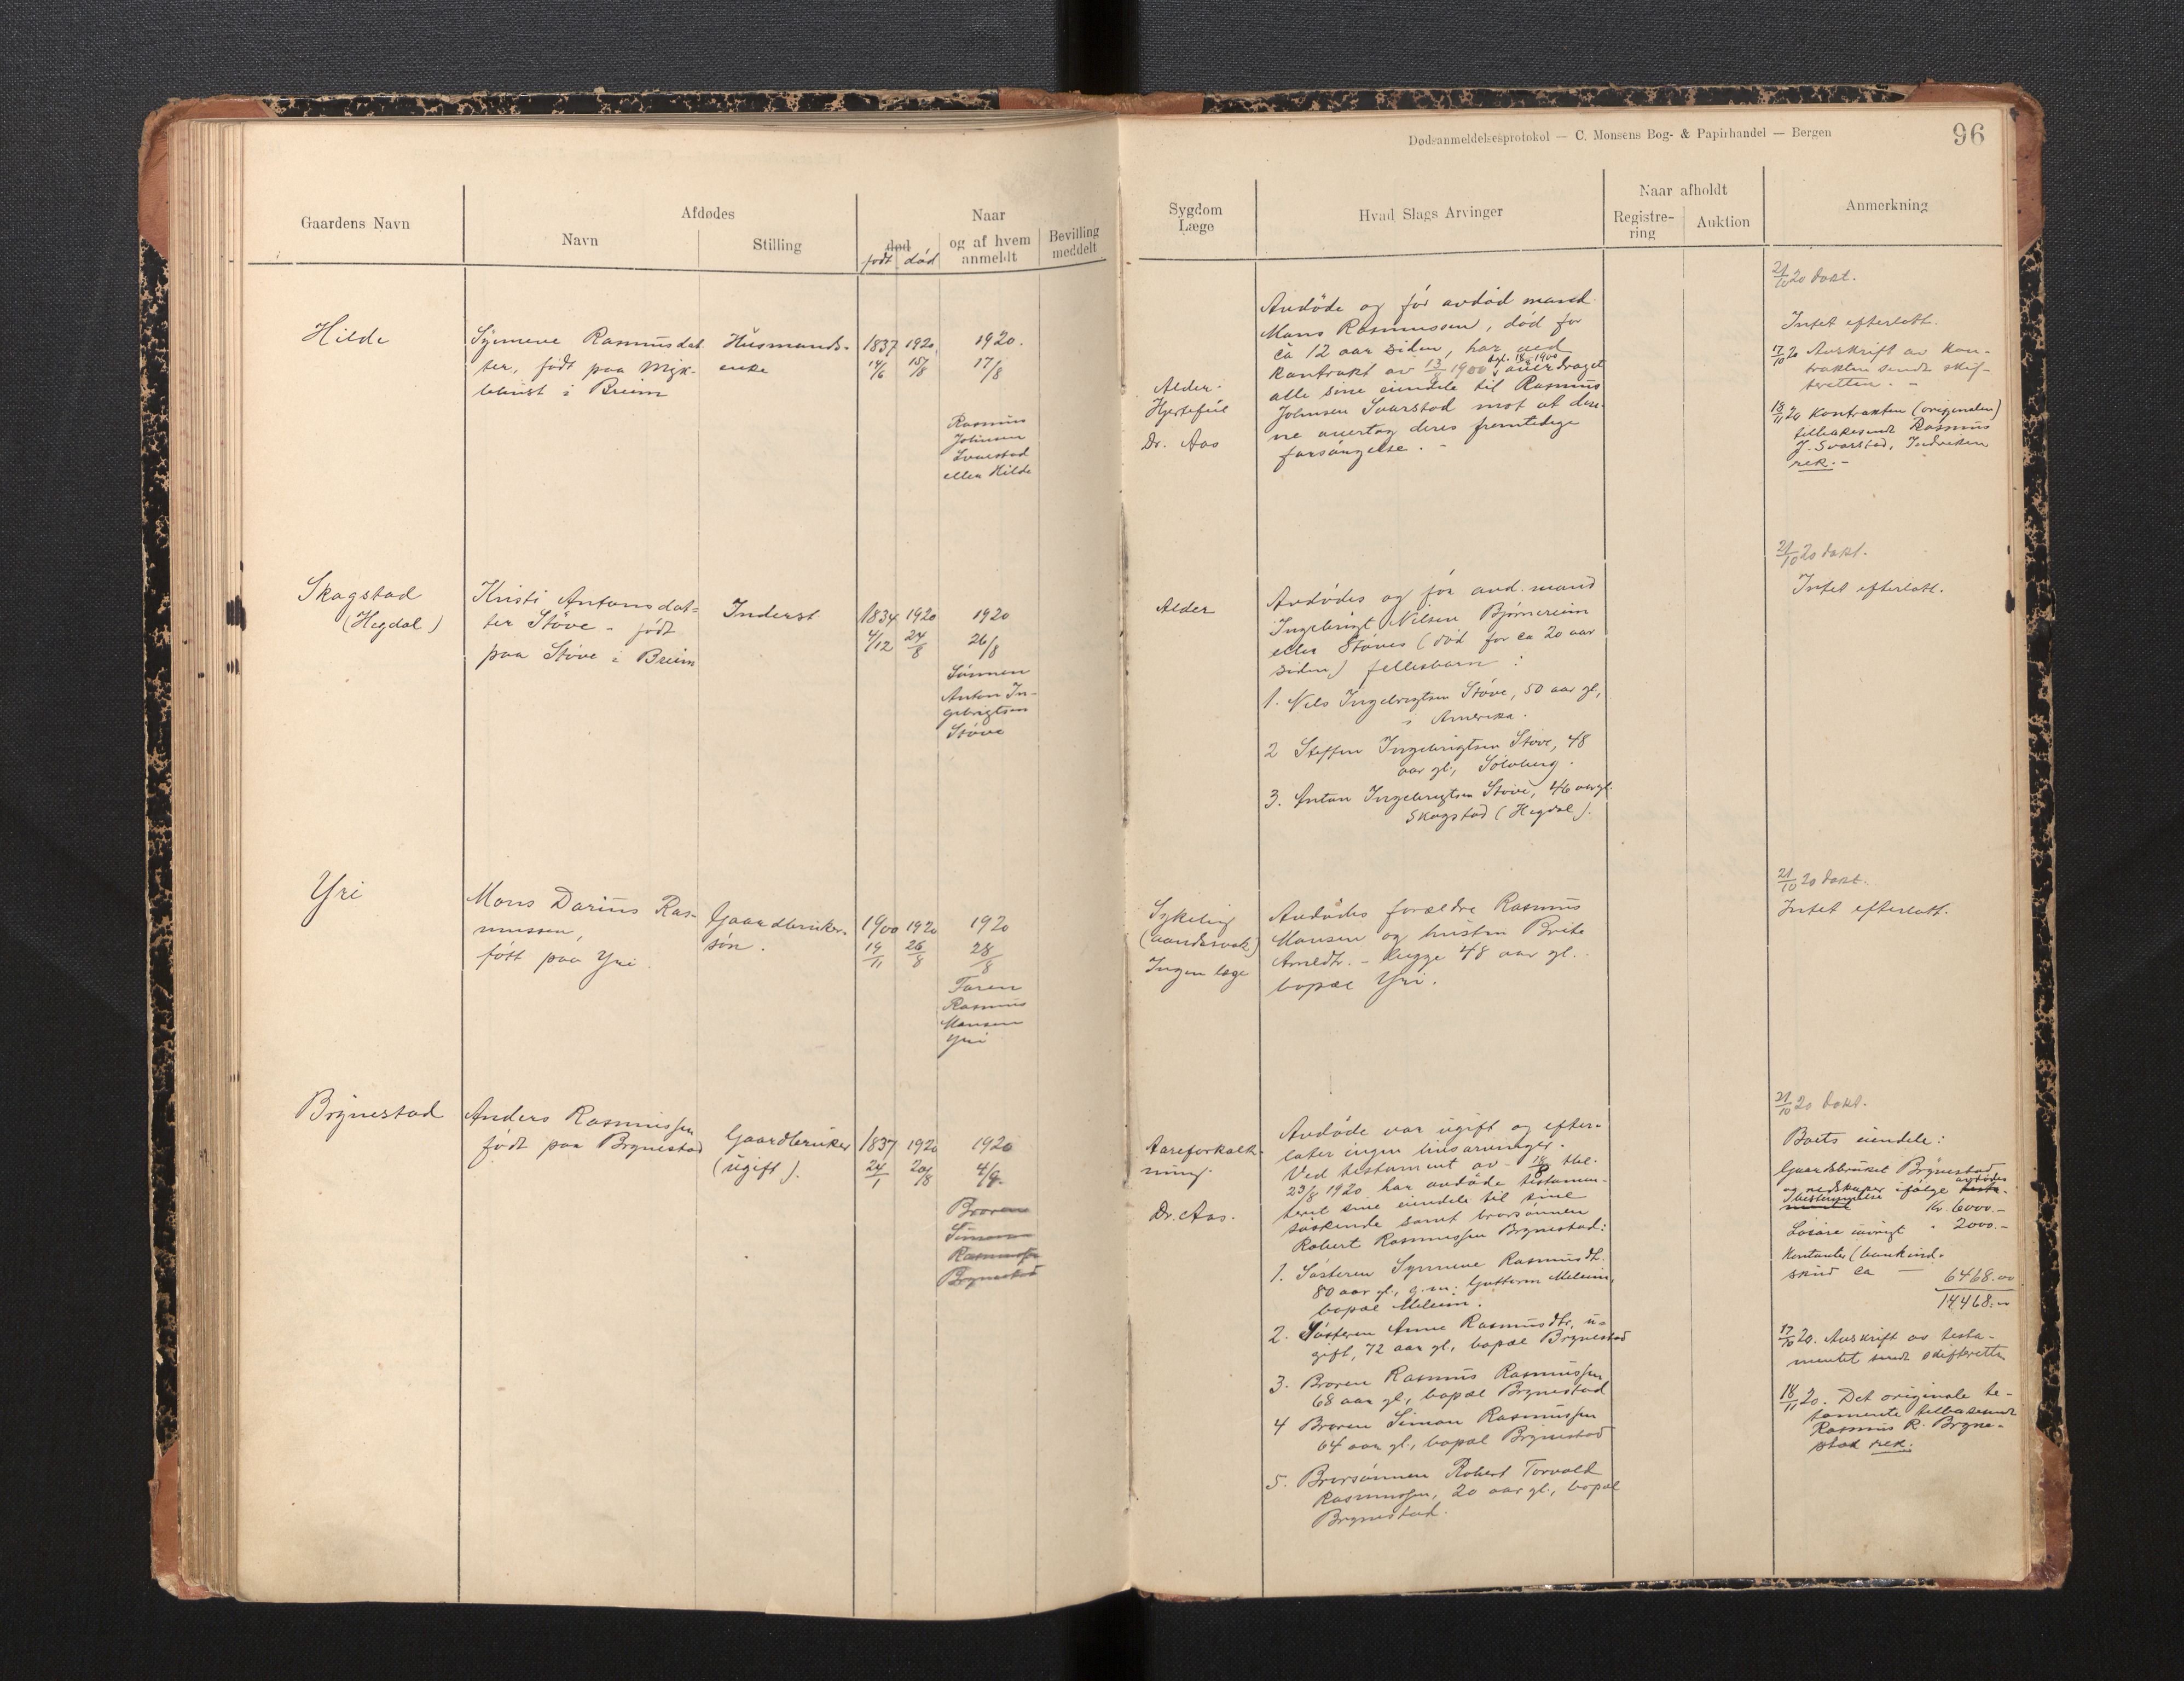 Dødsanmeldelsesprotokol — C. Monsens Bog- & Papirhandel — Bergen
96
Gaardens Navn
Afdødes
Navn
Stilling
Naar
død
født død
og af hvem
anmeldt
Bevilling
meddelt
Sygdom
Læge
Hvad Slags Arvinger
Naar afholdt
Registre-
ring
Auktion
Anmerkning
Hilde
Synneve Rasmusdat
ter, født paa Myk-
lebust i Breim
Husmands-
enke
1837 1920 1920.
14/6 15/8 17/8
Rasmus
Johnsen
Svarstad
eller Hilde
Alder.
Hjertefeil
Dr. Aas
Avdøde og før avdød mand
Mons Rasmussen, død for
ca 12 aar siden, har ved
kontrakt av 13/8 1900, tgl. 18/8 1900 overdraget
alle sine eiendele til Rasmus
Johnsen Svarstad mot at den-
ne overtog deres fremtidige
forsørgelse.
21/10 20 dokt.
Intet efterlatt.
17/10 20 Avskrift av kon-
trakten sendt skif-
teretten. -
18/11 20 Kontrakten (originalen)
tilbakesendt Rasmus
J. Svarstad, Indviken
rek. -
Skogstad
(Hegdal)
Kristi Antonsdat-
ter Støve - født
paa Støve i Breim
Inderst
1834 1920 1920
4/12 24/8 26/8
Sønnen
Anton In-
gebrigtsen
Støve
Alder
Avdødes og før avd. mand
Ingebrigt Nilsen Bjørnereim
eller Støves (død for ca 20 aar
siden) fellesbarn:
1. Nils Ingebrigtsen Støve, 50 aar gl.,
i Amerika.
2 Steffen Ingebrigtsen Støve, 48
aar gl., Sølvberg.
3. Anton Ingebrigtsen Støve, 46 aar gl.
Skogstad (Hegdal).
21/10 20 dokt.
Intet efterlatt.
Yri
Mons Darius Ras-
mussen,
født paa Yri.
Gaardbruker-
søn.
1900 1920 1920
19/11 26/8 28/8
Faren
Rasmus
Monsen
Yri
Sykelig
(aandssvak)
Ingen læge
Avdødes forældre Rasmus
Monsen og hustru Brite
Arnedtr. - begge 48 aar gl.
bopæl Yri.
21/10 20 dokt.
Intet efterlatt.
Brynestad
Anders Rasmussen
født paa Brynestad
Gaardbruker
(ugift).
1837 1920 1920
24/1 20/8 4/9.
Broren
Simon
Rasmussen
Brynestad
Aareforkalk-
ning.
Dr. Aas.
Avdøde var ugift og efter-
later ingen livsarvinger.
Ved testament av 18/8 tkl.
23/8 1920 har avdøde testamen-
tert sine eiendele til sine
søskende samt brorsønnen
Robert Rasmussen Brynestad:
1. Søsteren Synneve Rasmusdtr.
80 aar gl., g.m. Guttorm Meleim,
bopæl Meleim.
2. Søsteren Anne Rasmusdtr, u-
gift, 72 aar gl., bopæl Brynestad
3. Broren Rasmus Rasmussen
68 aar gl., bopæl Brynestad
4 Broren Simon Rasmussen
64 aar gl., bopæl Brynestad
5. Brorsønnen Robert Torvald
Rasmussen, 20 aar gl., bopæl
Brynestad.
21/10 20 dokt.
Boets eiendele:
Gaardsbruket Brynestad
og redskaper ifølge avdødes testa-
bestemmelse mentet Kr. 6000.-
Løsøre iøvrigt " 2000.-
Kontanter (bankind-
skud ca — 6468.00
14468.00
17/10 20. Avskrift av testa-
mentet sendt skifteretten
18/11 20. Det originale te-
stamente tilbakesendt
Rasmus R. Bryne-
stad rek.